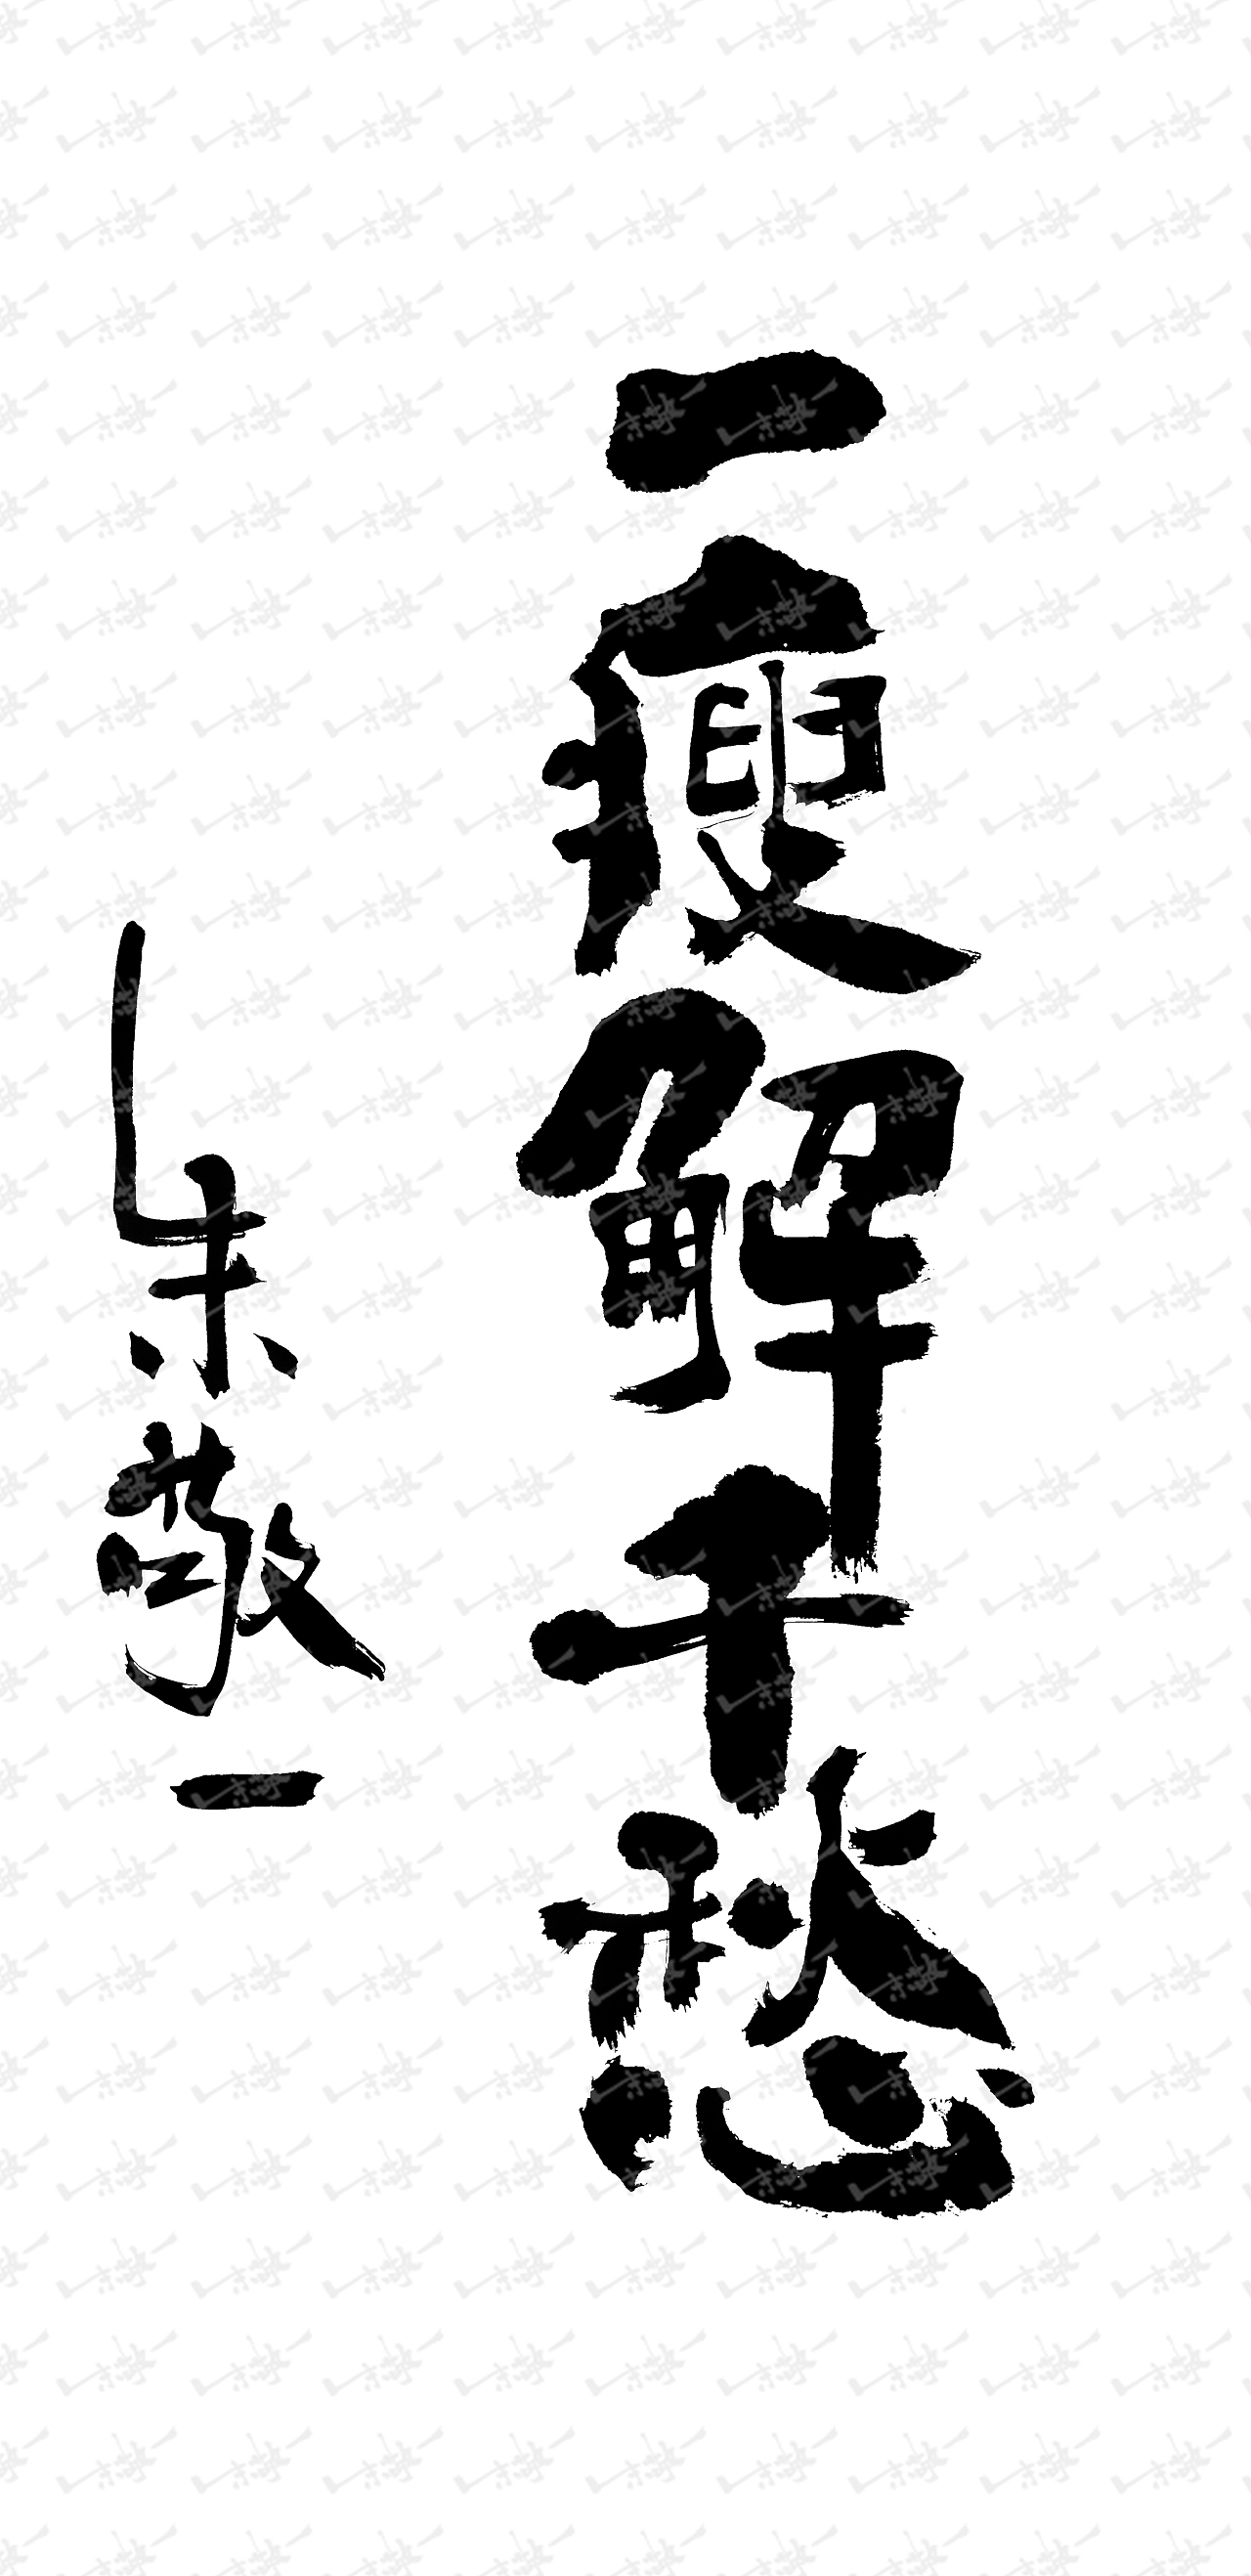 一瘦解千愁
朱敬一